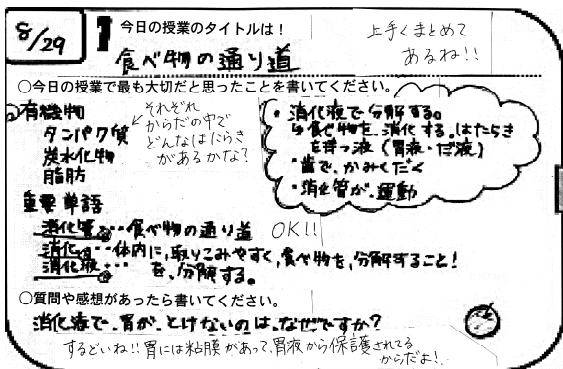 8/29
1 今日の授業のタイトルは！
食べ物の通り道
上手くまとめて
あるね!!
○今日の授業で最も大切だと思ったことを書いてください。
有機物
タンパク質
炭水化物
脂肪
それぞれ
からだの中で
どんなはたらき
があるかな?
・消化液で分解する。
↳食べ物を消化する。はたらき
を持つ液(胃液・だ液)
・歯で、かみくだく
・消化管が、運動
重要単語
消化管…食べ物の通り道 OK!!
消化…体内に、取りこみやすく、食べ物を、分解すること!
消化液…を、分解する。
○質問や感想があったら書いてください。
消化液で、胃が、とけないのは、なぜですか?
するどいね!!胃には粘膜があって、胃液から保護されてる
からだよ!.